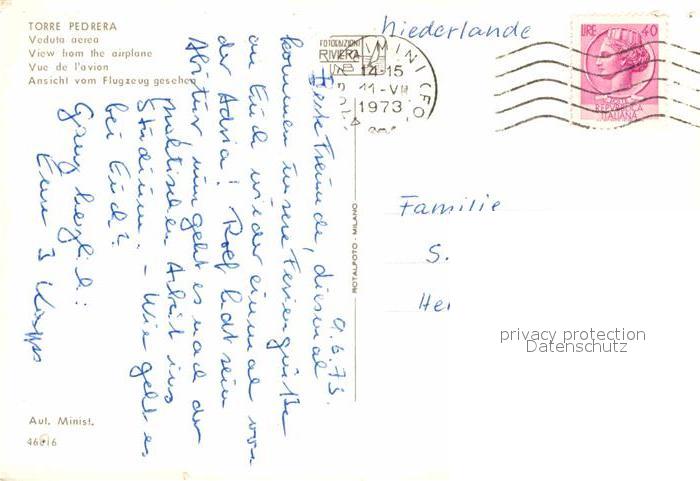 TORRE PEDRERA
Veduta aerea
View from the airplane
Vue de l'avion
Ansicht vom Flugzeug gesehen
Niederlande
LIRE 40
POSTE
REPUBBLICA
ITALIANA
FOTOEDIZIONI
RIVIERA
RIMINI (FO)
14-15
11-VI
1973
9.6.73.
Liebe Freunde, diesmal
kommen unsere Feriengrüße
an Euch wieder einmal von
der Adria! Rolf hat sein
Abitur, nun geht es nach der
praktischen Arbeit ins
Studium. - Wie geht es
bei Euch?
Ganz herzl.:
Eure 3
ROTALFOTO - MILANO
Familie
S.
Hei
privacy protection
Datenschutz
Aut. Minist.
46616